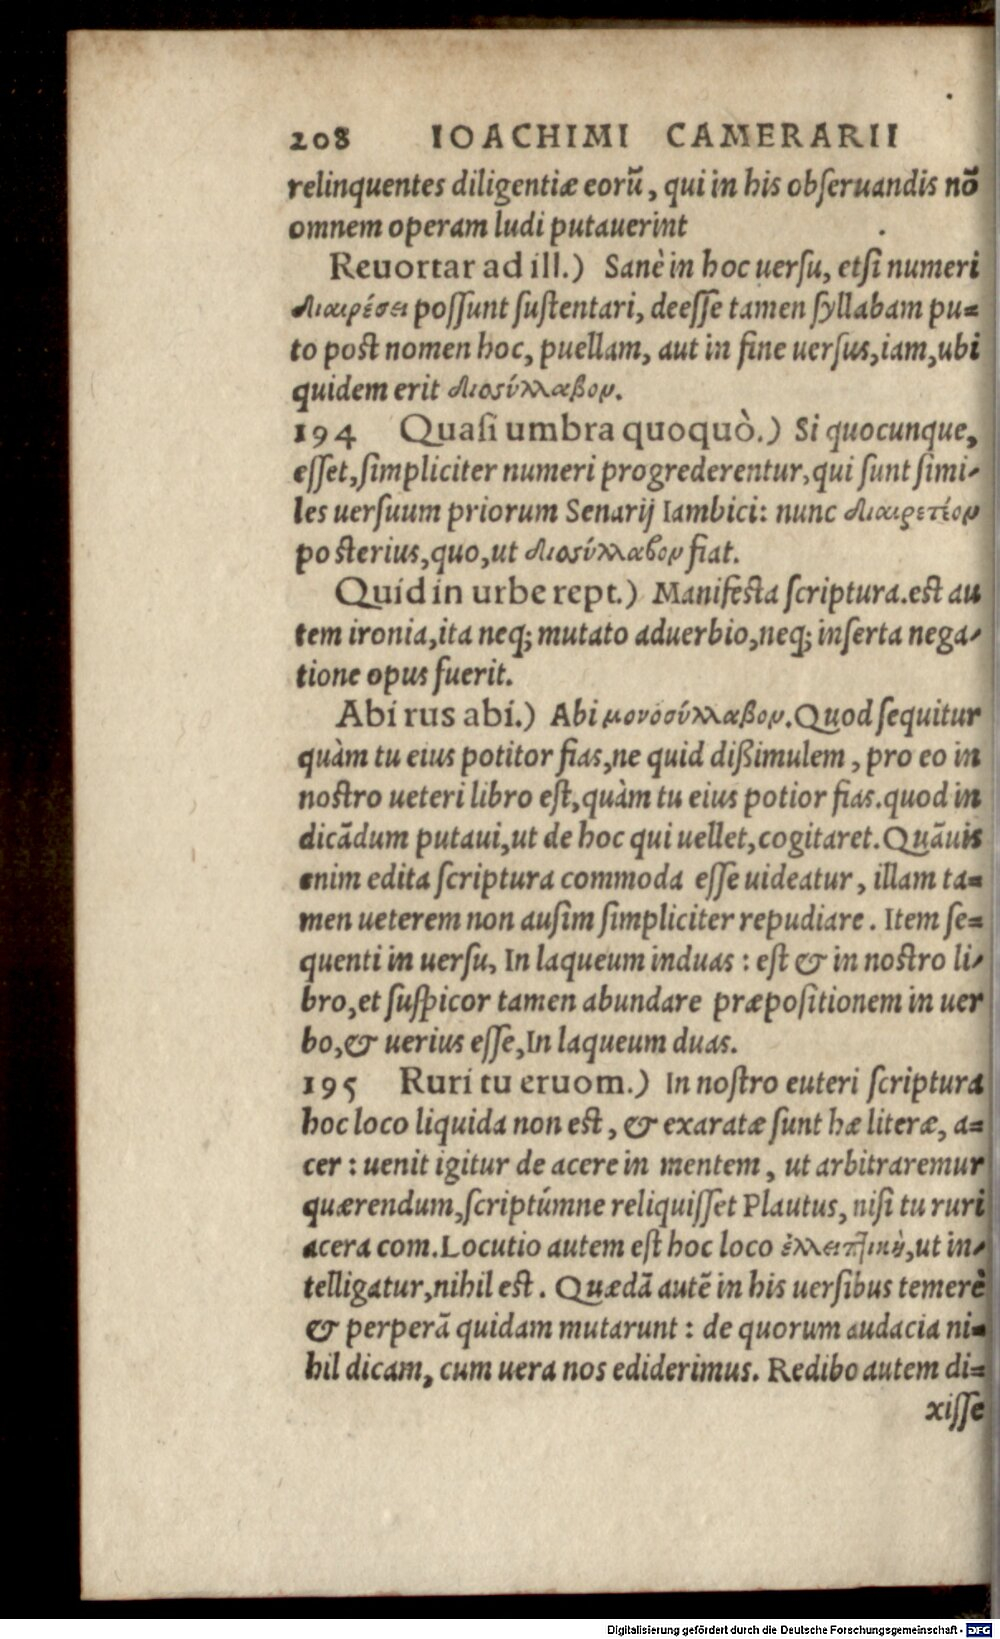 208 IOACHIMI CAMERARII
relinquentes diligentiæ eorũ, qui in his obſeruandis nõ
omnem operam ludi putauerint
Reuortar ad ill.) Sanè in hoc uerſu, etſi numeri
διαιρέσει poſſunt ſuſtentari, deeſſe tamen ſyllabam pu=
to post nomen hoc, puellam, aut in fine uerſus, iam, ubi
quidem erit δισσύλλαβον.
194 Quaſi umbra quoquò.) Si quocunque,
eſſet, ſimpliciter numeri progrederentur, qui ſunt ſimi-
les uerſuum priorum Senarij Iambici: nunc διαιρετέον
posterius, quo, ut δισσύλλαβον fiat.
Quid in urbe rept.) Manifesta ſcriptura. est au
tem ironia, ita neq; mutato aduerbio, neq; inſerta nega-
tione opus fuerit.
Abi rus abi.) Abi μονοσύλλαβον. Quod ſequitur
quàm tu eius potitor fias, ne quid dißimulem, pro eo in
nostro ueteri libro eſt, quàm tu eius potior fias. quod in
dicãdum putaui, ut de hoc qui uellet, cogitaret. Quãuis
enim edita ſcriptura commoda eſſe uideatur, illam ta=
men ueterem non auſim ſimpliciter repudiare. Item ſe=
quenti in uerſu, In laqueum induas: eſt & in nostro li-
bro, et ſuſpicor tamen abundare præpoſitionem in uer
bo, & uerius eſſe, In laqueum duas.
195 Ruri tu eruom.) In noſtro euteri ſcriptura
hoc loco liquida non est, & exaratæ ſunt hæ literæ, a=
cer: uenit igitur de acere in mentem, ut arbitraremur
quærendum, ſcriptúmne reliquiſſet Plautus, niſi tu ruri
acera com. Locutio autem eſt hoc loco ἐλλειπτικὴ, ut in-
telligatur, nihil est. Quædã autẽ in his uerſibus temerè
& perperã quidam mutarunt: de quorum audacia ni=
hil dicam, cum uera nos ediderimus. Redibo autem di=
xiſſe
Digitalisierung gefördert durch die Deutsche Forschungsgemeinschaft - DFG